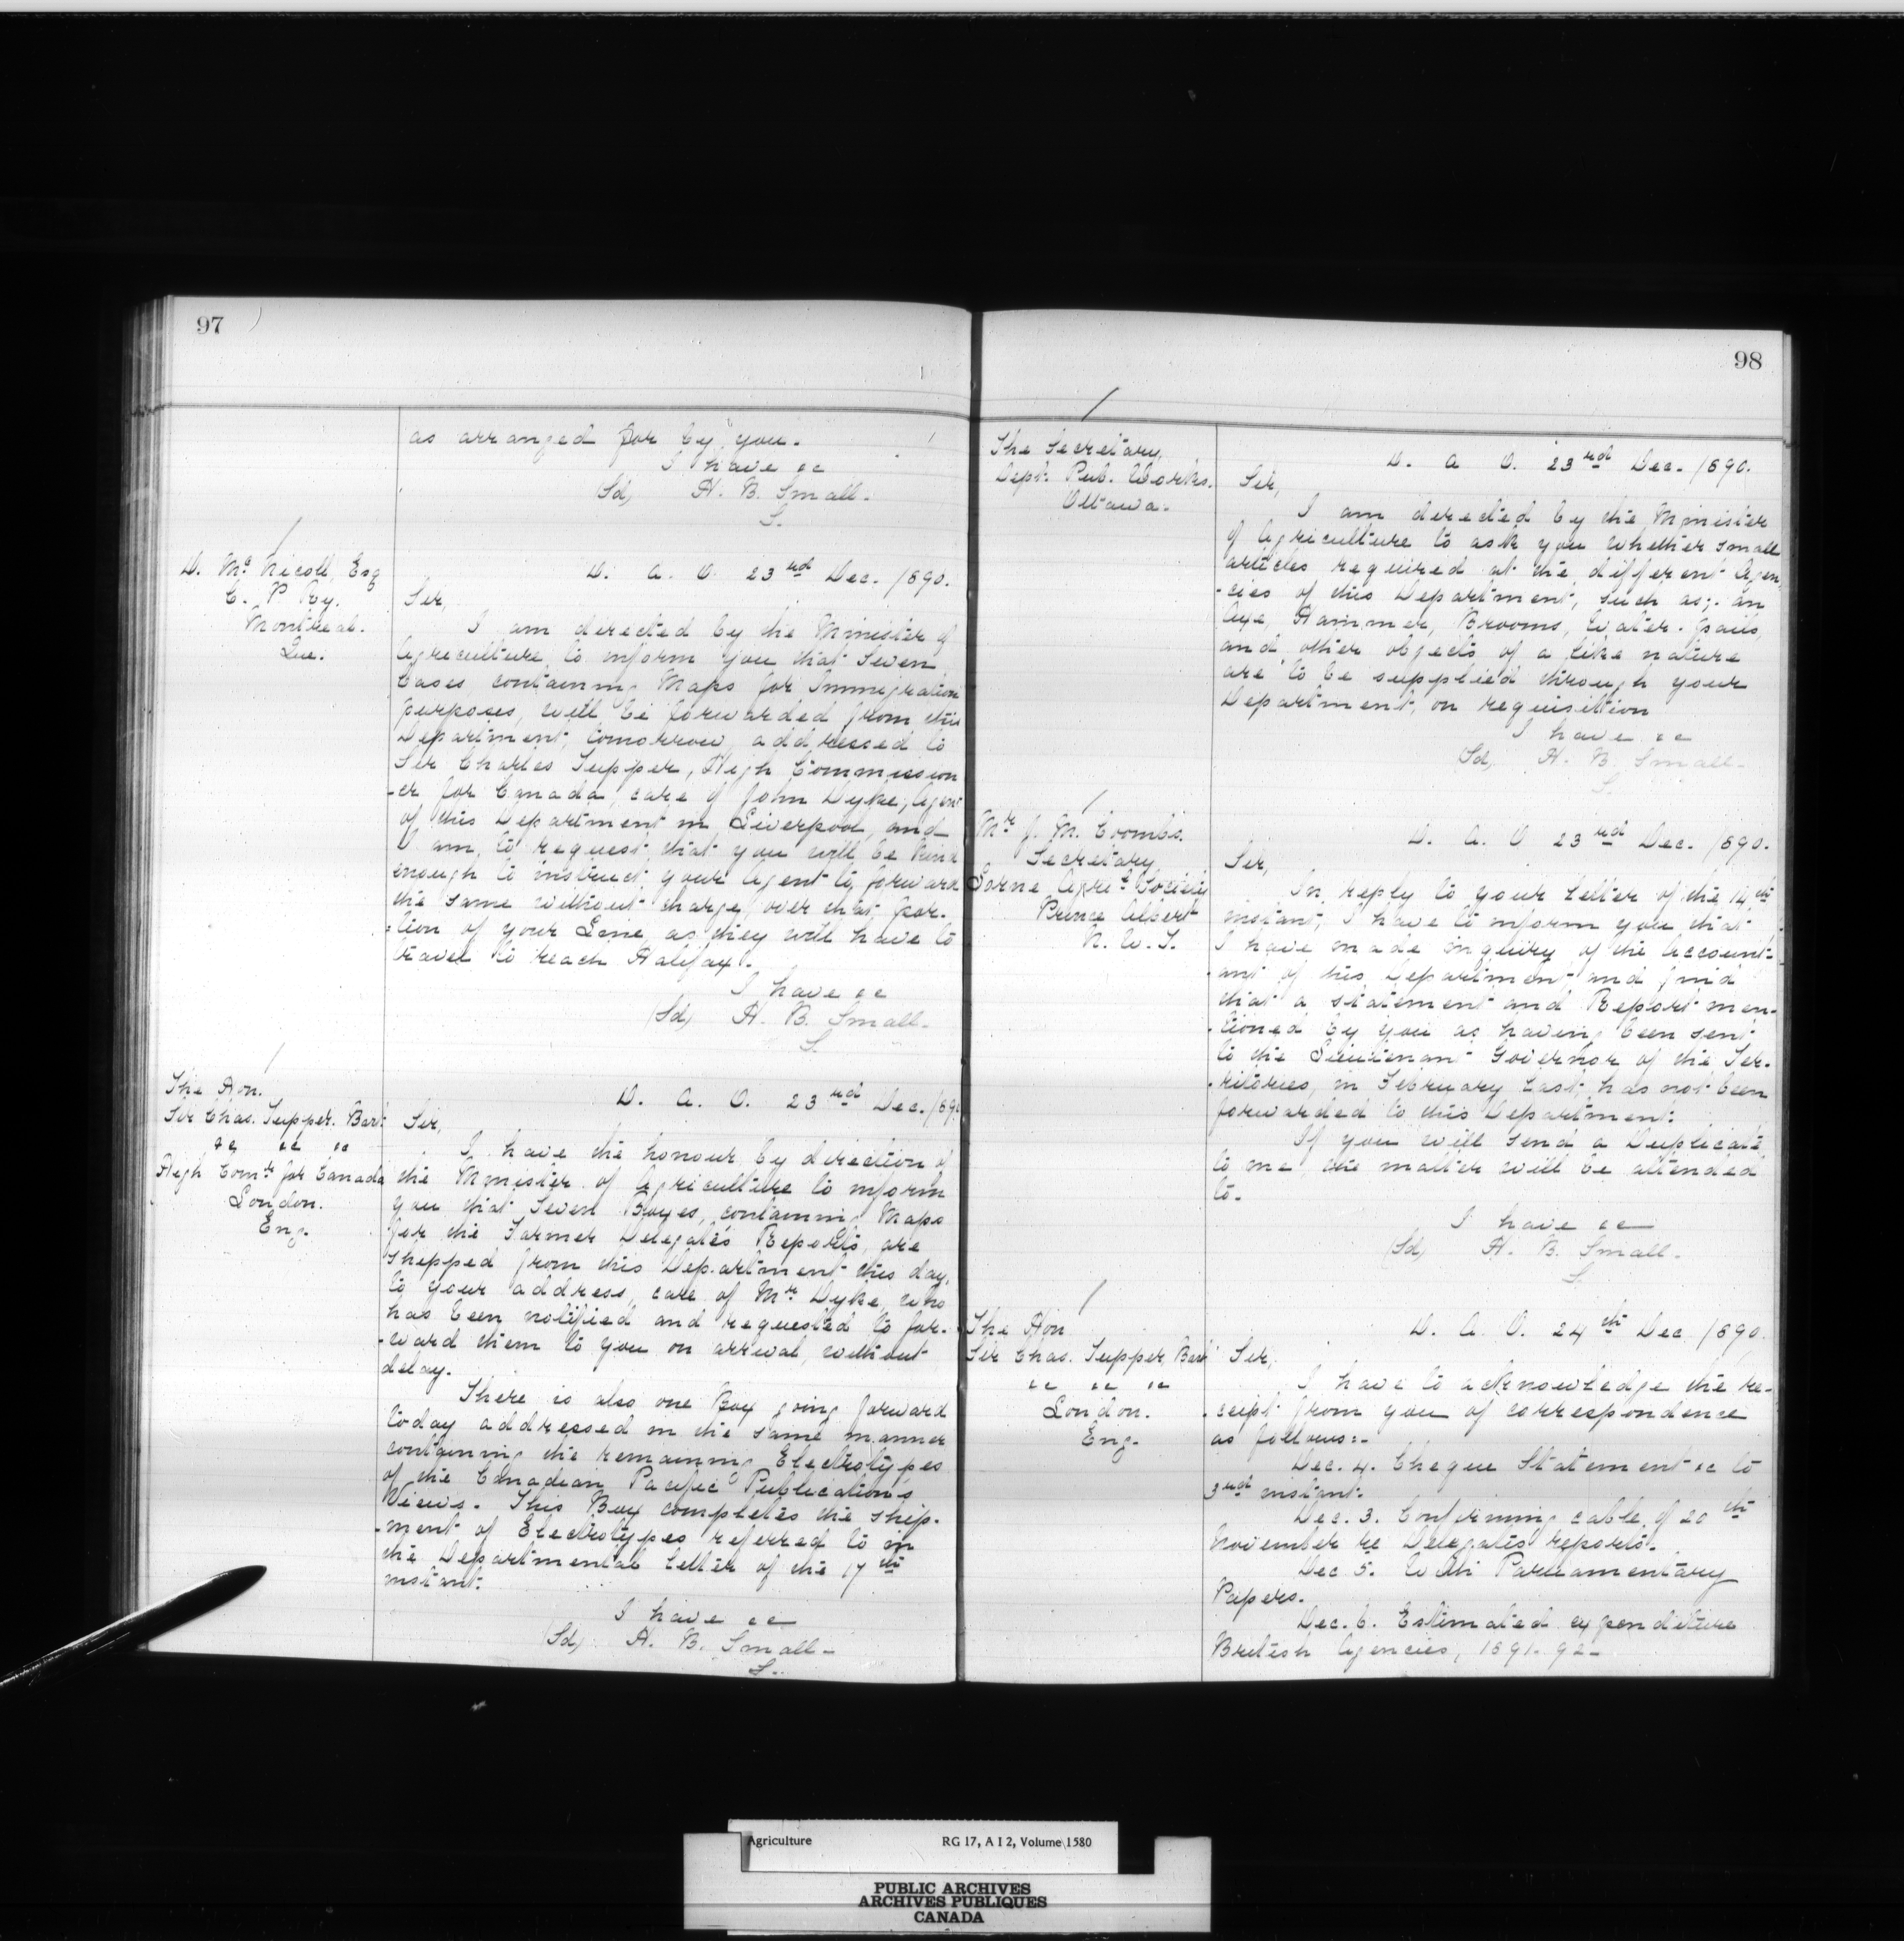 97
as arranged for by you.
I have &c
(Sd) H. B. Small.
S.
D. McNicoll, Esq
C. P Ry.
Montreal.
Que.
D. A. O. 23rd Dec. 1890.
Sir,
I am directed by the Minister of
Agriculture, to inform you that Seven
Cases, containing Maps for Immigration
purposes, will be forwarded from this
Department, tomorrow, addressed to
Sir Charles Tupper, High Commission
-er for Canada, care of John Dyke, Agent
of this Department in Liverpool, and
I am, to request, that you will be kind
enough to instruct your Agent to forward
the same without charge, over that por-
-tion of your Line, as they will have to
travel to reach Halifax.
I have &c
(Sd) H. B. Small.
S.
The Hon.
Sir Chas. Tupper. Bart
&c &c &c
High Comr for Canada
London.
Eng.
D. A. O. 23rd Dec. 1890
Sir,
I have the honour by direction of
the Minister of Agriculture to inform
you that Seven Boxes, containing Maps
for the Farmer Delegates Reports, are
shipped from this Department this day,
to your address, care of Mr Dyke, who
has been notified and requested to for-
-ward them to you on arrival, without
delay.
There is also one Box going forward
today addressed in the same manner
containing the remaining Electrotypes
of the Canadian Pacific Publications
Views. This Box completes the ship-
-ment of Electrotypes referred to in
the Departmental Letter of the 17th
instant.
I have &c
(Sd) H. B. Small.
S.
98
The Secretary,
Dept. Pub. Works.
Ottawa.
D. A. O. 23rd Dec. 1890.
Sir,
I am directed by the Minister
of Agriculture to ask you whether small
articles required at the different Agen
-cies of this Department, such as; an
Axe, Hammer, Brooms, Water-pails,
and other objects of a like nature
are to be supplied through your
Department, on requisition
I have &c
(Sd) H. B. Small.
S.
Mr J. M. Coombs.
Secretary
Lorne Agrl Society
Prince Albert
N. W. T.
D. A. O 23rd Dec. 1890.
Sir,
In reply to your Letter of the 14th
instant, I have to inform you that
I have made inquiry of the Account-
-ant of this Department, and find
that a statement and Report men-
-tioned by you as having been sent
to the Lieutenant Governor of the Ter-
-ritories, in February Last, has not been
forwarded to this Department.
If you will send a Duplicate
to me the matter will be attended
to.
I have &c
(Sd) H. B. Small.
S.
The Hon
Sir Chas. Tupper, Bart
&c &c &c
London.
Eng.
D. A. O. 24th Dec 1890.
Sir,
I have to acknowledge the re-
-ceipt from you of correspondence
as follows:-
Dec. 4. Cheque Statement &c to
3rd instant.
Dec. 3. Confirming cable of 20th
November re Delegates reports.
Dec 5. With Parliamentary
Papers.
Dec. 6. Estimated expenditure
British Agencies, 1891-92-
Agriculture RG 17, A I 2, Volume 1580
PUBLIC ARCHIVES
ARCHIVES PUBLIQUES
CANADA